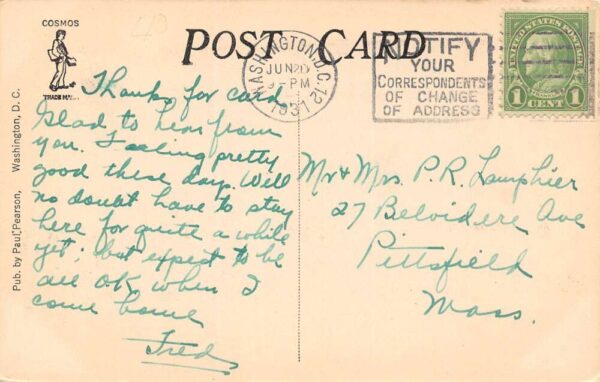 COSMOS
TRADE MARK
POST CARD
WASHINGTON, D.C. 12
JUN 20
9 - PM
1937
NOTIFY
YOUR
CORRESPONDENTS
OF CHANGE
OF ADDRESS
UNITED STATES POSTAGE
1 CENT 1
Pub. by Paul Pearson, Washington, D. C.
Thanks for card
Glad to hear from
you. Feeling pretty
good these days. Will
no doubt have to stay
here for quite a while
yet; but expect to be
all O.K. when I
come home
Fred
Mr & Mrs. P.R. Lamphier
27 Belvidere Ave
Pittsfield
Mass.